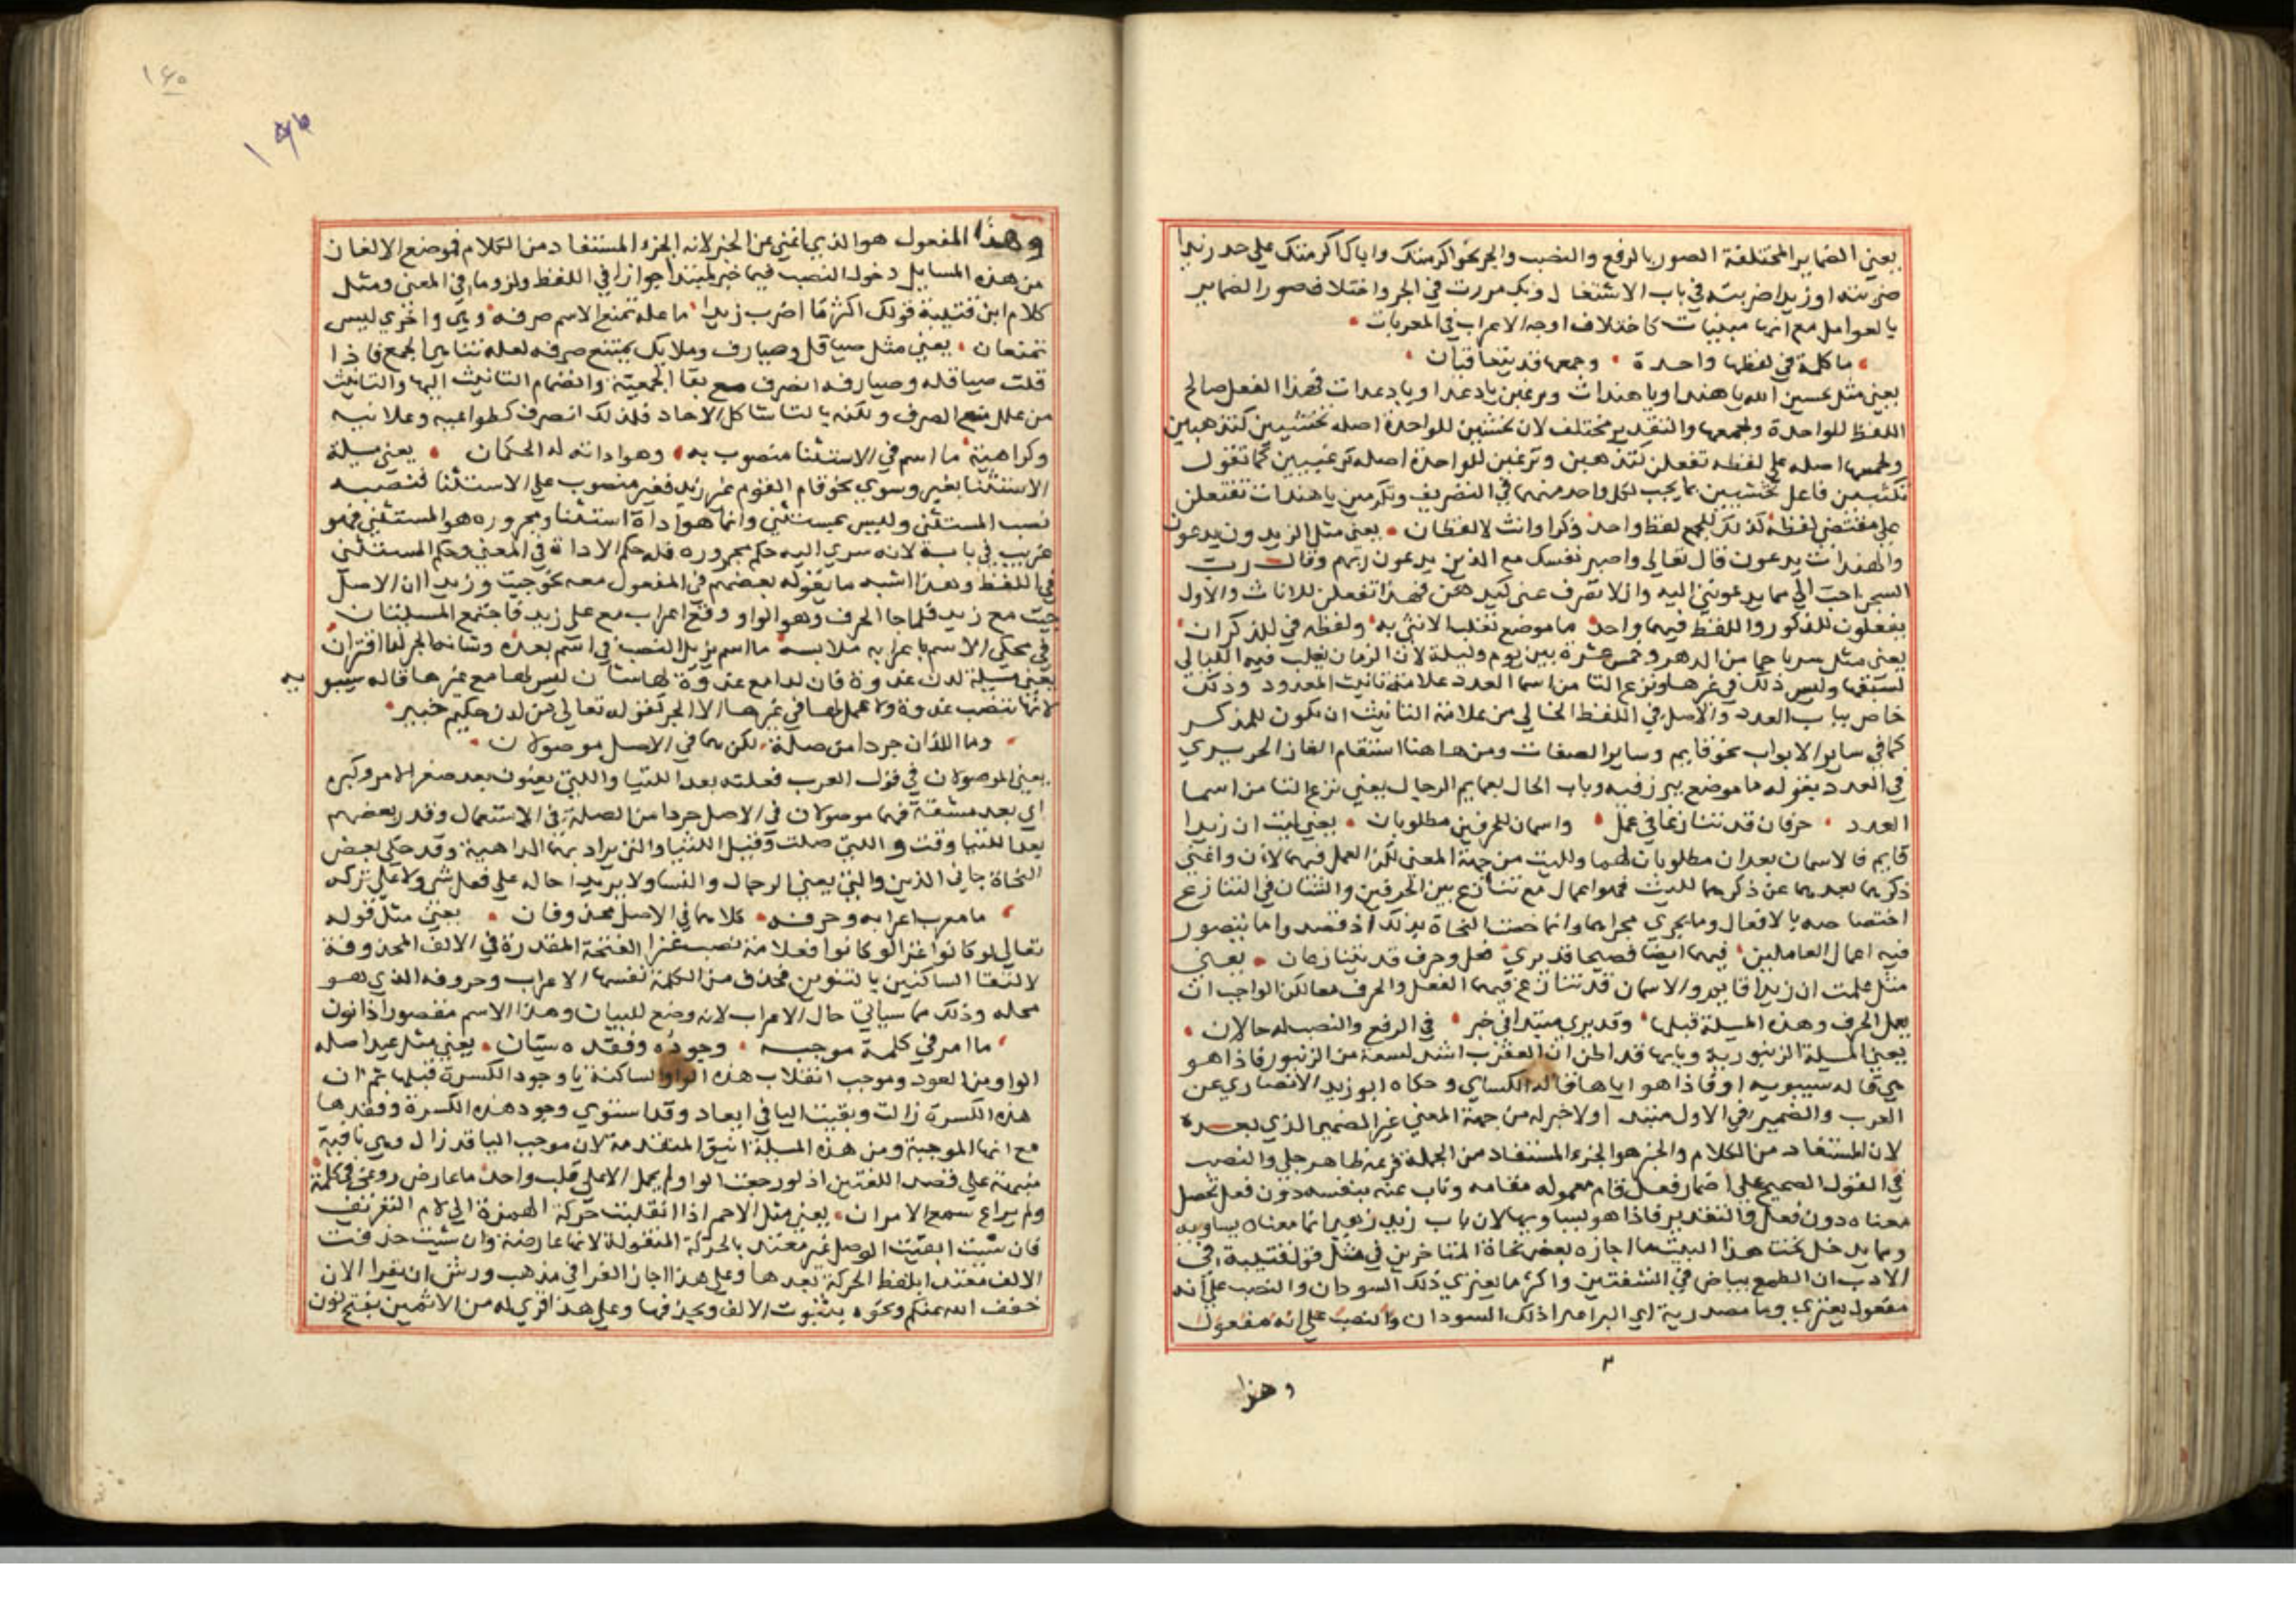 يعني الضماير المختلفة الصور بالرفع والنصب والجر نحو اكرمتك واياك اكرمتك علي حد زيدا
ضربته او زيدا ضربته في باب الاشتغال وبك مررت في الجر واختلاف صور الضماير
بالعوامل مع انها مبنيات كاختلاف اوجه الاعراب في المعربات
ما كلمة في لفظها واحدة وجمعها قد يتعاقبان
يعني مثل تخشين الله يا هند او يا هندات وترغبن يا دعد او يا دعدات فهذا الفعل صالح
اللفظ للواحدة ولجمعها والتقدير مختلف لان تخشين للواحدة اصله تخشيين كتذهبين
ولجمعها اصله علي لفظه تفعلن كتذهبن وترغبن للواحدة اصله كما تقول
علي مقتضي لفظه كذلك للجمع لفظ واحد ذكرا وانث لا لفظان يعني مثل الزيدون يدعون
والهندات يدعون قال تعالي واصبر نفسك مع الذين يدعون ربهم وقال رب
السجن احب الي مما يدعونني اليه والا تصرف عني كيدهن فهذا تفعلن للاناث والاول
يفعلون للذكور واللفظ فيهما واحد ما موضع تغلب الانثي به ولفظه في للذكران
يعني مثل سرنا حينا من الدهر وخمس عشرة بين يوم وليلة لان الزمان يغلب فيه الليالي
لسبقها وليس ذلك في غيرها ونزع التا من اسما العدد علامة تانيث المعدود وذلك
خاص بباب العدد والاصل في اللفظ الخالي من علامة التانيث ان يكون للمذكر
كما في ساير الابواب نحو قايم وساير الصفات ومن ها هنا استقام الغاز الحريري
في العدد بقوله ما موضع يبرز فيه وباب الحال بعمايم الرجال يعني نزع التا من اسما
العدد حرفان قد تنازعا في عمل واسمان للحرفين مطلوبان يعني ليت ان زيدا
قايم فالاسمان بعد ان مطلوبان لهما ولليت من جهة المعني لكن العمل فيهما لان واغني
ذكرهما بعدهما عن ذكرهما لليت فهو اعمال مع تنازع بين الحرفين والشان في التنازع
اختصاصه بالافعال وما يجري مجراها وانما خصت النحاة بذلك اذ قصدوا ما يتصور
فيه اعمال العاملين فيهما ايضا فصيحا قد يري فعل وحرف قد يتنازعان يعني
مثل علمت ان زيدا قايم والاسمان قد تنازع فيهما الفعل والحرف معا لكن الواجب ان
يعمل الحرف وهذه المسلة قبلها وقد يري مبتدا في خبر في الرفع والنصب له حالان
يعني المسلة الزنبورية وبابها قد اظن ان العقرب اشد لسعة من الزنبور فاذا هو
هي قاله سيبويه او فاذا هو اياها قاله الكساي وحكاه ابو زيد الانصاري عن
العرب والضمير في الاول مبتدا ولا خبر له من جهة المعني غير الضمير الذي بعده
لان المستفاد من الكلام والخبر هو الجزء المستفاد من الجملة فرفعه ظاهر جلي والنصب
في القول الصحيح علي اضمار فعل قام معموله مقامه وناب عنه بنفسه دون فعل تحصل
معناه دون فعل فالتقدير فاذا هو يساويها لان باب زيد زهير انما معناه يساويه
ومما يدخل تحت هذا البيت ما اجازه بعض نحاة المتاخرين في مثل قول قتيبة في
الادب ان الطمع بياض في الشفتين واكثر ما يعتري ذلك السودان والنصب علي انه
مفعول يعتري وما مصدرية اي اكثر اعترا ذلك السودان والنصب علي انه مفعول
وهذا
١٤٥
وهذا المفعول هو الذي اغني عن الخبر لانه الجزء المستفاد من الكلام فموضع الالغاز
من هذه المسايل دخول النصب فيما خبر لمبتدا جوازا في اللفظ ولزوما في المعني ومثل
كلام ابن قتيبة قولك اكثر ما اضرب زيدا ما علة تمنع الاسم صرفه وهي واخري ليس
تمنعان يعني مثل صياقل وصيارف وملايك يمتنع صرفه لعلة تناهي الجمع فاذا
قلت صياقلة وصيارفة انصرف مع بقا الجمعية وانضمام التانيث اليها والتانيث
من علل منع الصرف ولكنه بالتا شاكل الاحاد فلذلك انصرف كطواعية وعلانية
وكراهية ما اسم في الاستثنا منصوب به وهو اداته له الحكمان يعني مسلة
الاستثنا بغير وسوي نحو قام القوم غير زيد فغير منصوب علي الاستثنا فنصبه
نصب المستثني وليس بمستثني وانما هو اداة استثنا ومجروره هو المستثني فهو
غريب في بابه لانه سري اليه حكم مجروره فله حكم الاداة في المعني وحكم المستثني
في اللفظ وهذا اشبه ما يقوله بعضهم في المفعول معه نحو جيت وزيدا ان الاصل
جيت مع زيد فلما جا الحرف وهو الواو وقع اعراب مع علي زيد فاجتمع المسلتان
في الاسم باعرابه ملابسه ما اسم يزيل النصب في اسم بعده وشانها الجر لها اقتران
يعني مسلة لدن غدوة فان لدا مع غدوة لها شان ليس لها مع غيرها قاله سيبويه
لانها تنصب غدوة ولا عمل لها في غيرها الا الجر كقوله تعالي من لدن حكيم خبير
وما اللذان جردا من صلة لكن هما في الاصل موصولان
يعني الموصولان في قول العرب فعلته بعد اللتيا والتي يعنون بعد صغر الامر وكبره
اي بعد مشقة فهما موصولان في الاصل جردا من الصلة في الاستعمال وقدر بعضهم
بعد اللتيا وقت والتي صلت وقيل اللتيا والتي يراد بهما الداهية وقد حكي بعض
النحاة جاني الذين والتي يعني الرجال والنسا ولا يريد احاله علي فعل شر ولا علي تركه
ما معرب اعرابه وحرفه كلاهما في الاصل محذوفان يعني مثل قوله
تعالي لو كانوا غزا لو كانوا فعلامة نصب غزا الفتحة المقدرة في الالف المحذوفة
لالتقا الساكنين بالتنوين فحذف من الكلمة نفسها الاعراب وحروفه الذي هو
محله وذلك مما سياتي حال الاعراب لانه وضع للبيان وهذا الاسم مقصور اذا نون
ما امر في كلمة موجبه وجوده وفقده سيان يعني مثل عيد اصله
الواو من العود وموجب انقلاب هذه الواو الساكنة يا وجود الكسرة قبلها ثم ان
هذه الكسرة زالت وبقيت اليا في اعياد وقد استوي وجود هذه الكسرة وفقدها
مع انها الموجبة ومن هذه المسلة اينق المتقدمة لان موجب اليا قد زال وهي باقية
علي قصد اللغتين اذ لو رجعت الواو لم يحمل الا علي قلب واحد ما عارض روعي في كلمة
ولم يراع سمع الامران يعني مثل الاحمر اذا انقلبت حركة الهمزة الي لام التعريف
فان شيت ابقيت الوصل غير معتد بالحركة المنقولة لانها عارضة وان شيت حذفت
الالف معتدا بلفظ الحركة بعدها وعلي هذا اجاز الفرا في مذهب ورش ان يقرا الان
خفف الله عنكم ونحوه بثبوت الالف وبحذفها وعلي هذا قري له من الاثمين بفتح نون